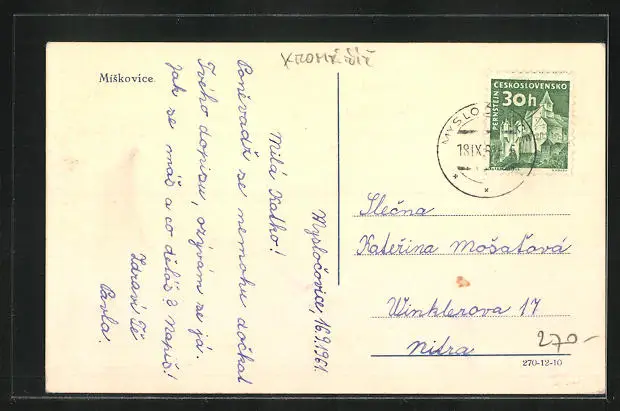 KROMĚŘÍŽ
Míškovice.
Mysločovice, 16.9.1961.
Milá Katko!
Poněvadž se nemohu dočkat
Tvého dopisu, ozývám se já.
Jak se máš a co děláš? Napiš!
Zdraví Tě
Pavla.
ČESKOSLOVENSKO
30h
PERNŠTEJN
18.IX.6
Slečna
Kateřina Mošaťová
Winklerova 17
Nitra
270-
270-12-10